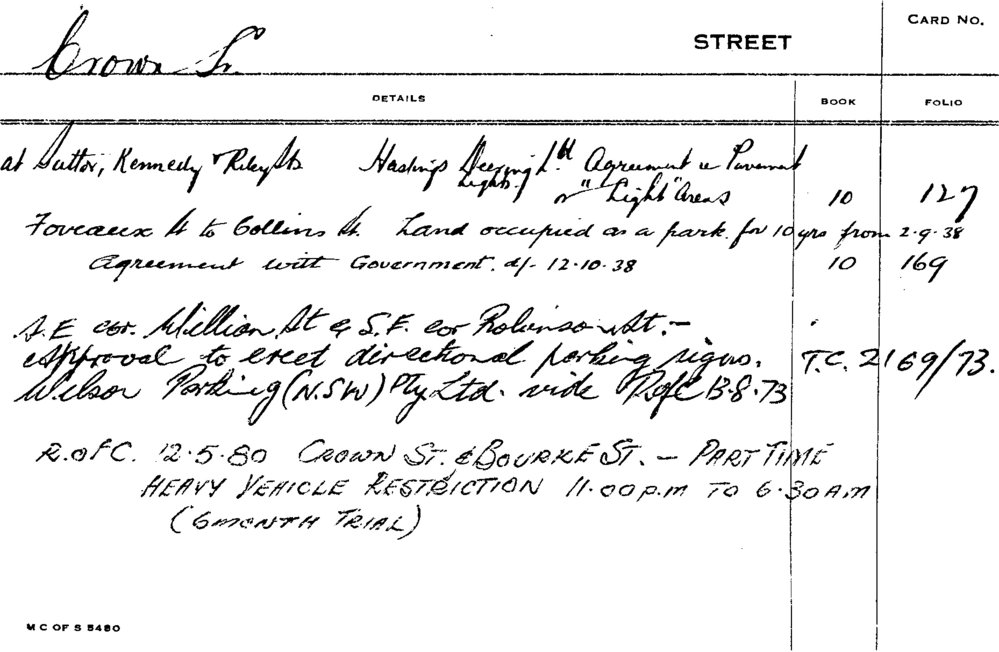 Crown St. STREET CARD NO.
DETAILS BOOK FOLIO
at Suttor, Kennedy & Riley Sts Hastings Deering Ltd Agreement re Pavement
Lights. or "Light" Areas 10 127
Foveaux St to Collins St. Land occupied as a park for 10 yrs from 2.9.38
Agreement with Government. d/- 12.10.38 10 169
S.E cor. William St & S.E. cor Robinson St. -
Approval to erect directional parking signs. T.C. 2169/73.
Wilson Parking (N.S.W) Pty Ltd. vide RofC 13.8.73
R.of C. 12.5.80 CROWN ST. & BOURKE ST. - PART TIME
HEAVY VEHICLE RESTRICTION 11.00 p.m TO 6.30 AM
(6 MONTH TRIAL)
M C OF S 5480